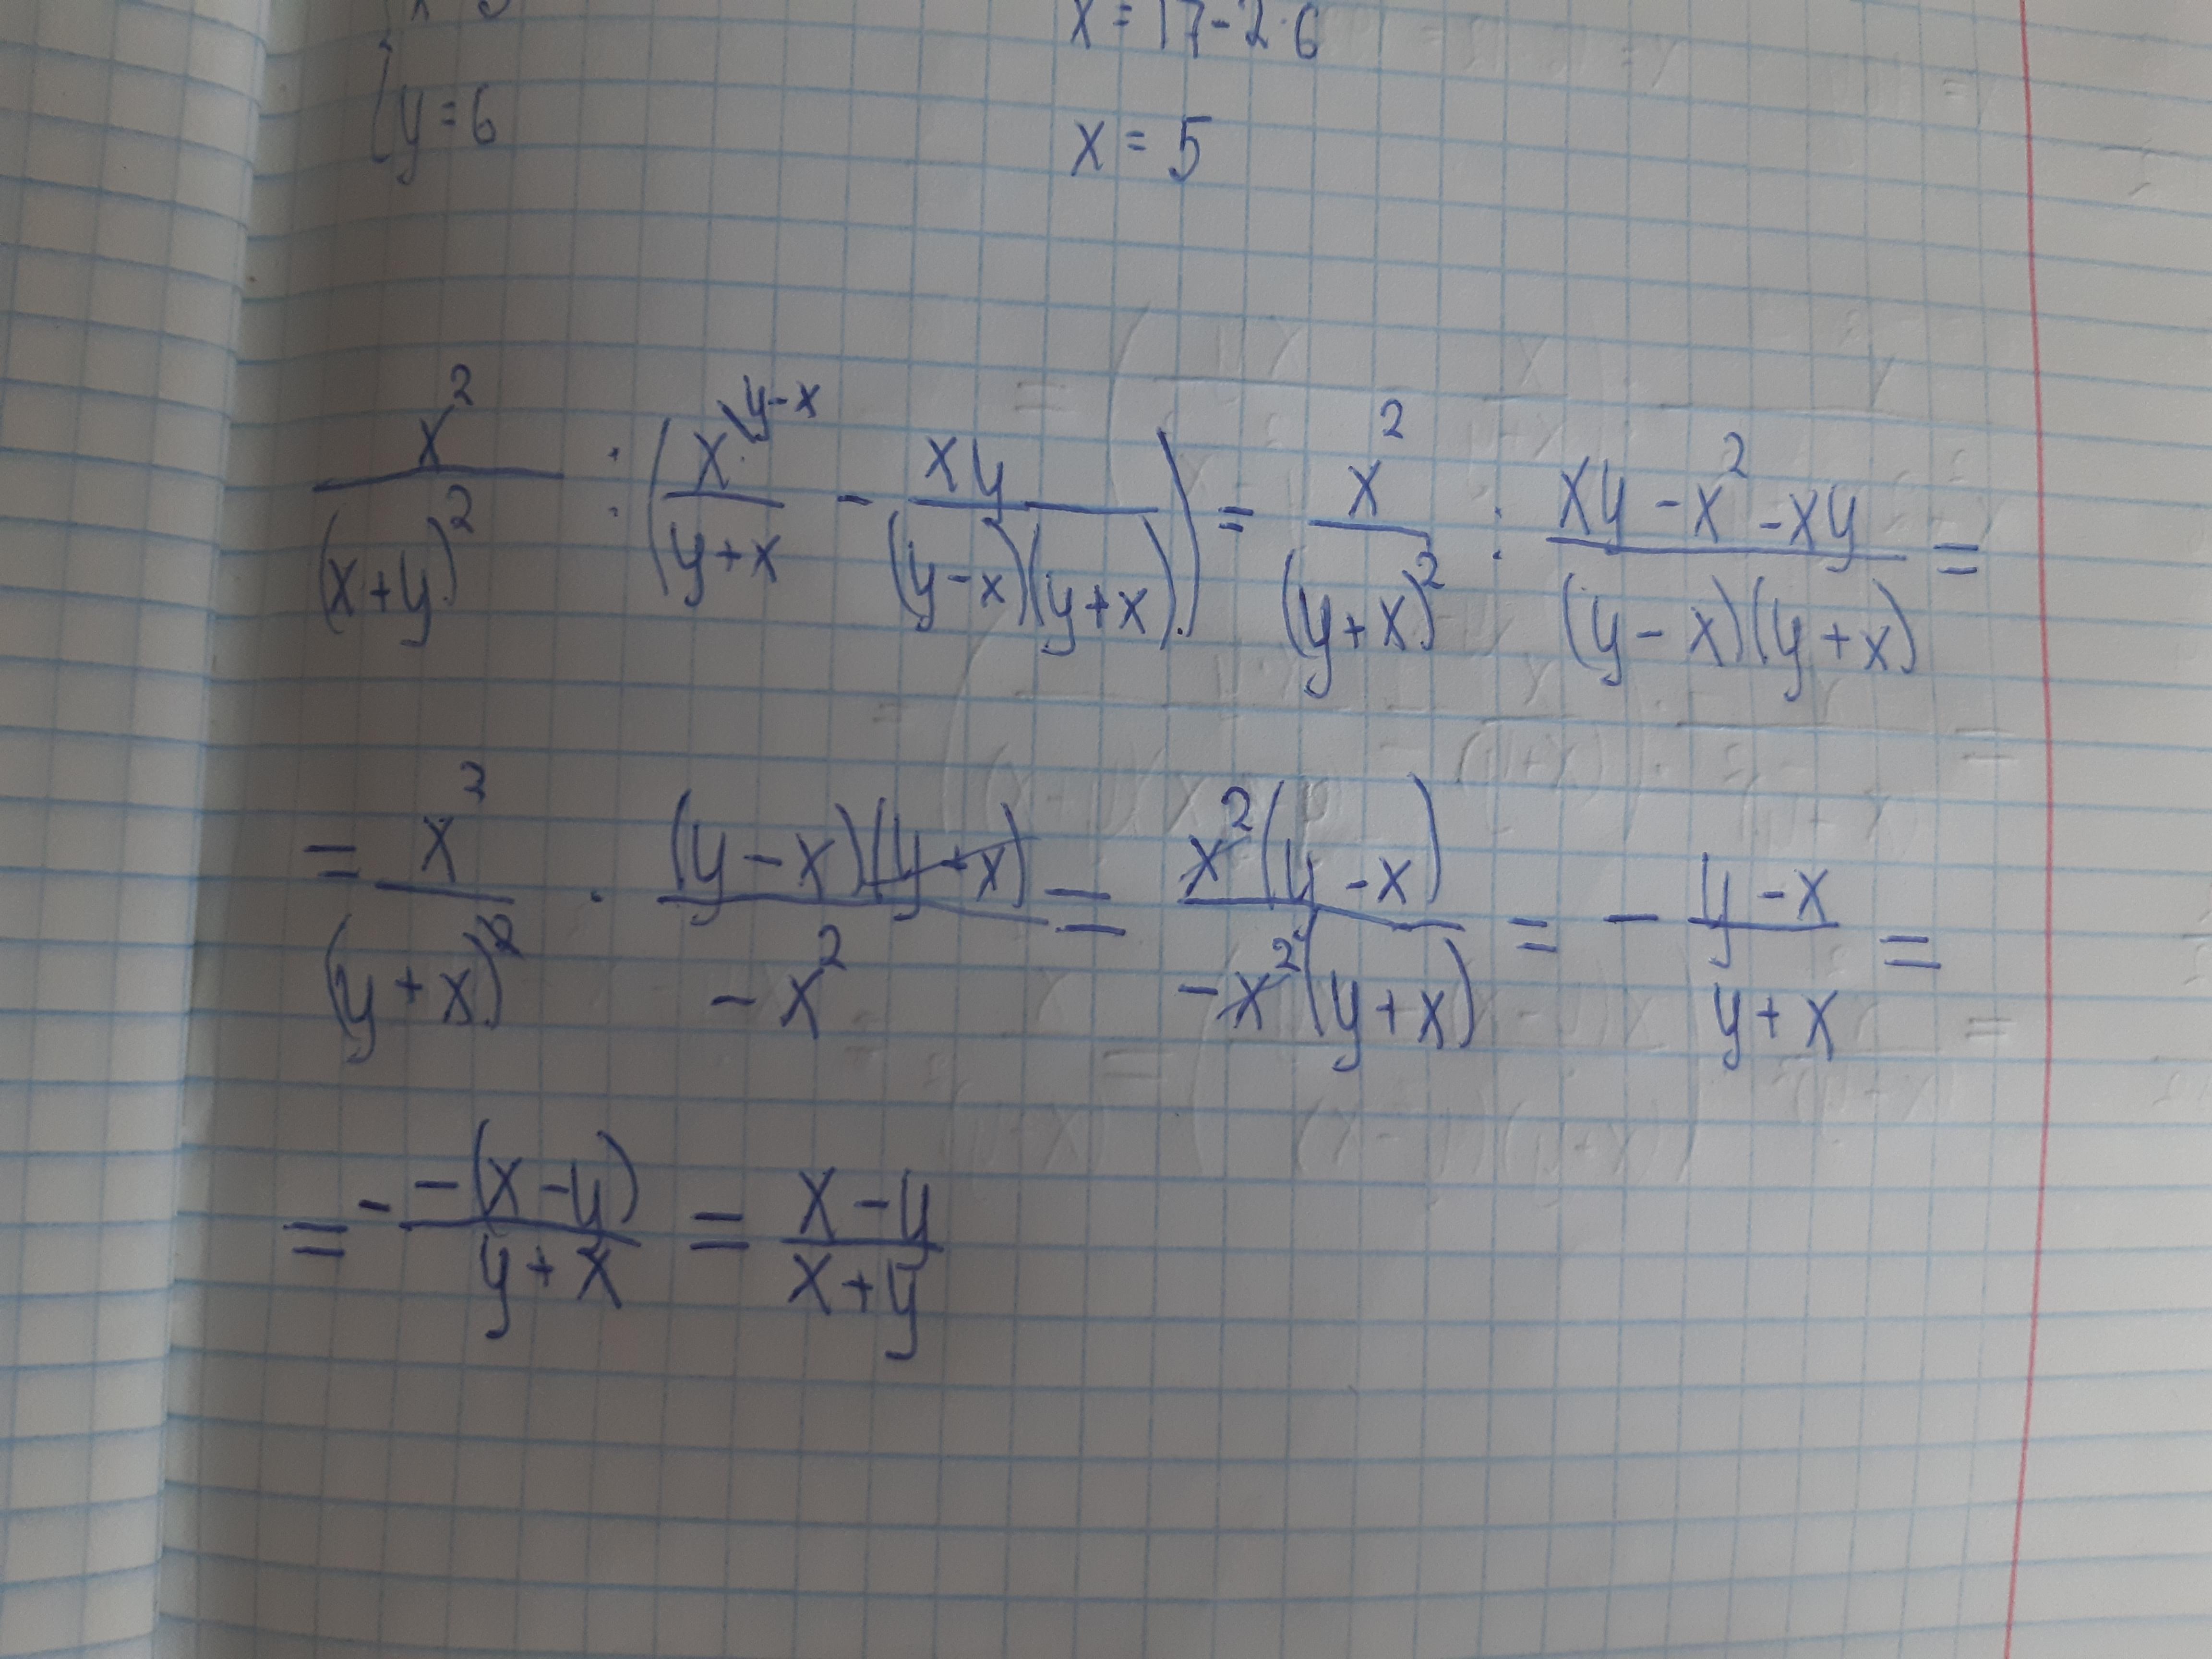 x = 17 - 2 · 6
{ y = 6
x = 5
x² / (x+y)² : ( x \ y-x / y+x - xy / (y-x)(y+x) ) = x² / (y+x)² : xy - x² - xy / (y-x)(y+x) =
= x² / (y+x)² · (y-x)(y+x) / -x² = x²(y-x) / -x²(y+x) = - y-x / y+x =
= - -(x-y) / y+x = x-y / x+y